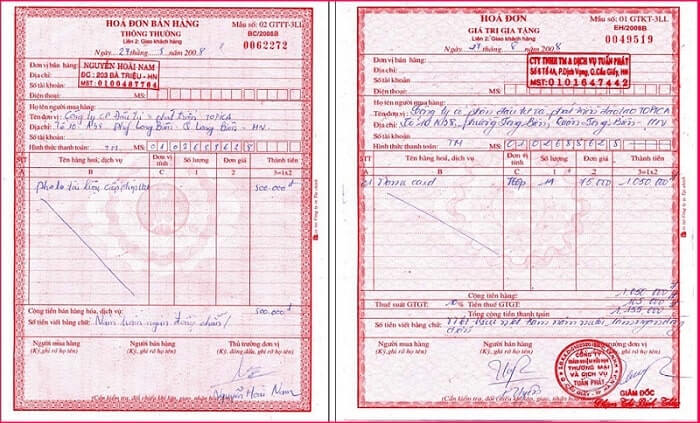 HOÁ ĐƠN BÁN HÀNG
THÔNG THƯỜNG
Liên 2: Giao khách hàng
Mẫu số: 02 GTTT-3LL
BC/2008B
0062272
Ngày 29 tháng 5 năm 2008
Đơn vị bán hàng:
NGUYỄN HOÀI NAM
Địa chỉ:
ĐC : 203 BÀ TRIỆU - HN
Số tài khoản
MST: 0100487764
Điện thoại: MS:
Họ tên người mua hàng
Tên đơn vị: Công ty CP Đầu tư & phát triển TOPICA
Địa chỉ: Tổ 10 Phg Long Biên Q Long Biên - HN
Số tài khoản
Hình thức thanh toán: TM MS:
STT Tên hàng hoá, dịch vụ Đơn vị tính Số lượng Đơn giá Thành tiền
A B C 1 2 3=1x2
Phô tô tài liệu 500.000đ
Cộng tiền bán hàng hóa, dịch vụ: 500.000đ
Số tiền viết bằng chữ: Năm trăm ngàn đồng chẵn/
Người mua hàng
(Ký, ghi rõ họ tên)
Người bán hàng
(Ký, ghi rõ họ tên)
Thủ trưởng đơn vị
(Ký, đóng dấu, ghi rõ họ tên)
Nguyễn Hoài Nam
(Cần kiểm tra, đối chiếu khi lập, giao, nhận hoá đơn)
HOÁ ĐƠN
GIÁ TRỊ GIA TĂNG
Liên 2: Giao khách hàng
Mẫu số: 01 GTKT-3LL
EH/2008B
0049519
Ngày 29 tháng 8 năm 2008
Đơn vị bán hàng:
CTY TNHH TM & DỊCH VỤ TUẤN PHÁT
Địa chỉ:
Số 6 Tổ 4A, P.Dịch Vọng, Q.Cầu Giấy, HN
Số tài khoản
MST: 0101647442
Điện thoại: MS:
Họ tên người mua hàng
Tên đơn vị: Công ty cổ phần đầu tư và phát triển TOPICA
Địa chỉ: Tổ 10 Phường Long Biên, Quận Long Biên - HN
Số tài khoản
Hình thức thanh toán: TM MS:
STT Tên hàng hoá, dịch vụ Đơn vị tính Số lượng Đơn giá Thành tiền
A B C 1 2 3=1x2
card Hộp 14 75.000 1.050.000đ
Cộng tiền hàng: 1.050.000đ
Thuế suất GTGT: 10% Tiền thuế GTGT: 105.000đ
Tổng cộng tiền thanh toán 1.155.000đ
Số tiền viết bằng chữ: Một triệu một trăm năm mươi lăm ngàn đồng chẵn
Người mua hàng
(Ký, ghi rõ họ tên)
Người bán hàng
(Ký, ghi rõ họ tên)
Thủ trưởng đơn vị
(Ký, đóng dấu, ghi rõ họ tên)
CÔNG TY
TRÁCH NHIỆM HỮU HẠN
THƯƠNG MẠI
VÀ DỊCH VỤ
TUẤN PHÁT
GIÁM ĐỐC
(Cần kiểm tra, đối chiếu khi lập, giao, nhận hoá đơn)